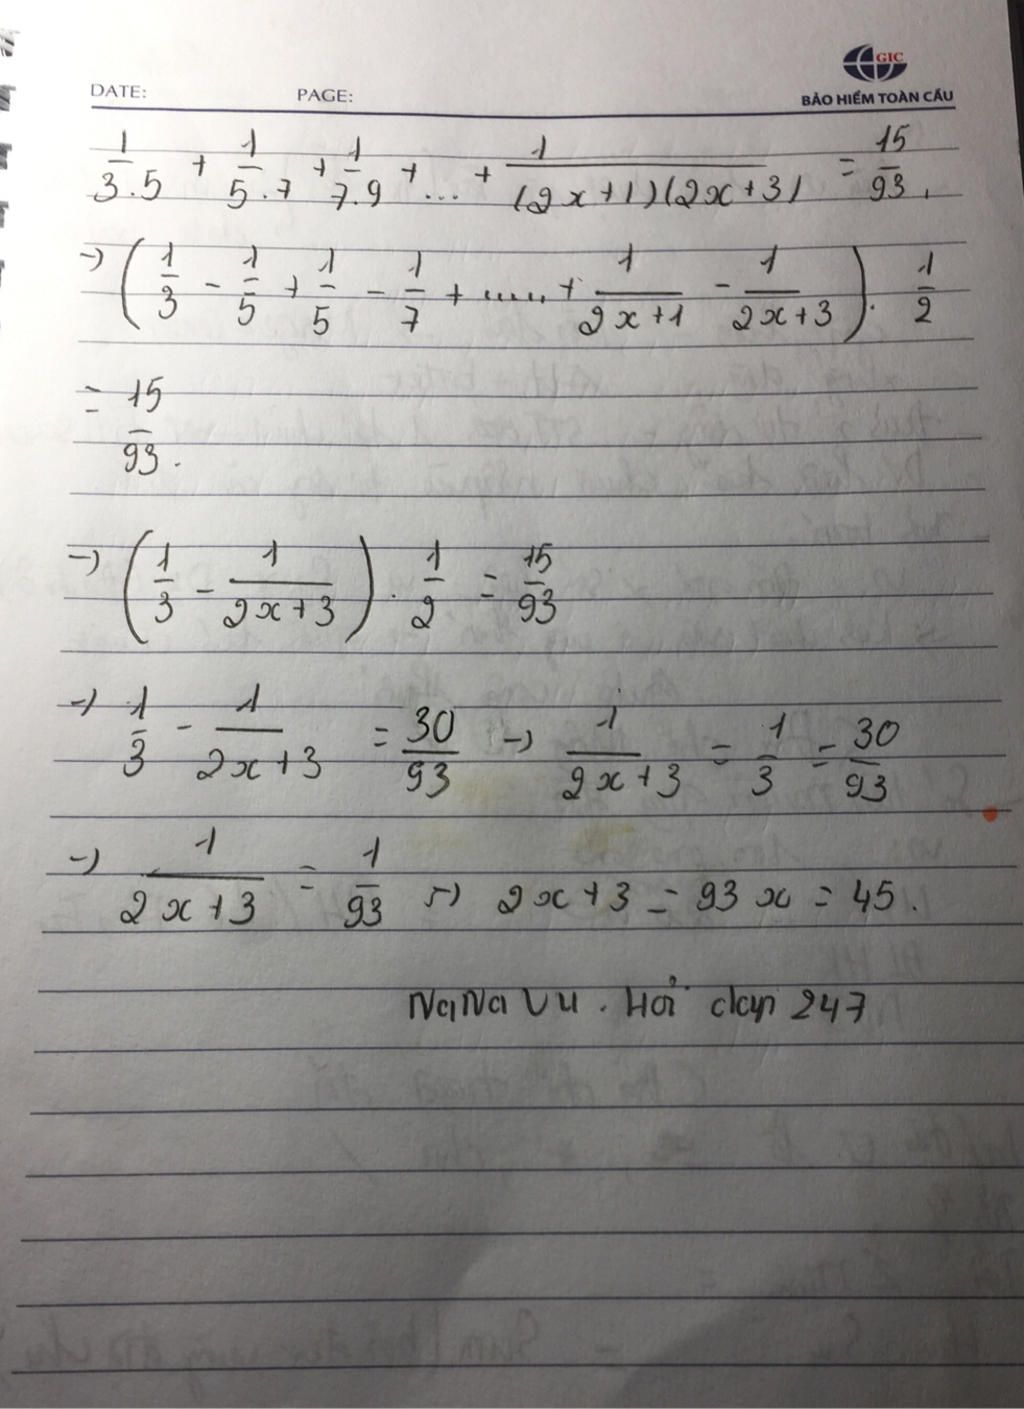 GIC
DATE: PAGE: BẢO HIỂM TOÀN CẦU
1/3.5 + 1/5.7 + 1/7.9 + ... + 1/(2x+1)(2x+3) = 15/93.
-) (1/3 - 1/5 + 1/5 - 1/7 + ..... + 1/2x+1 - 1/2x+3). 1/2
= 15/93.
-) (1/3 - 1/2x+3). 1/2 = 15/93
-) 1/3 - 1/2x+3 = 30/93 -) 1/2x+3 = 1/3 = 30/93
-) 1/2x+3 = 1/93 -) 2x+3 = 93 x = 45.
NaNa Vu. Hỏi đap 247